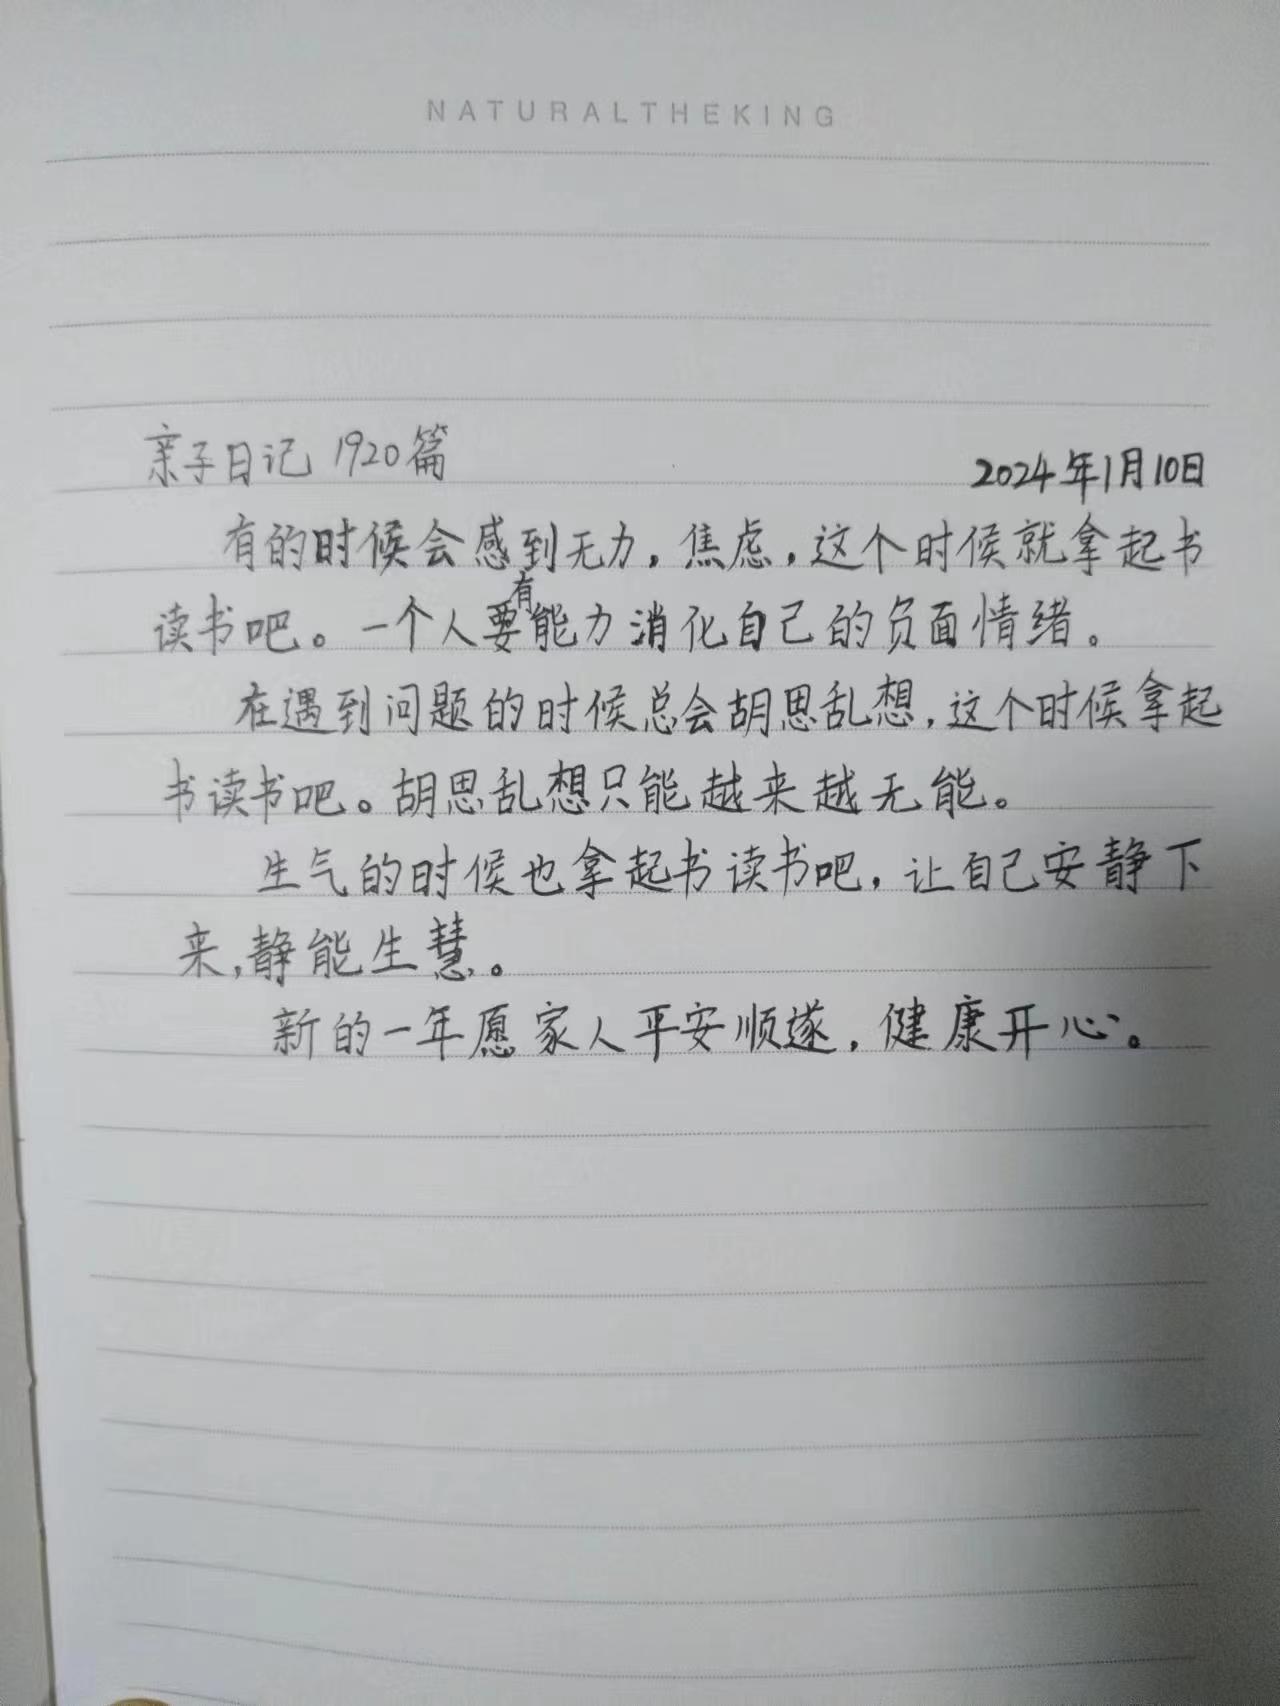 NATURALTHEKING
亲子日记 1920篇
2024年1月10日
有的时候会感到无力，焦虑，这个时候就拿起书
读书吧。一个人要有能力消化自己的负面情绪。
在遇到问题的时候总会胡思乱想，这个时候拿起
书读书吧。胡思乱想只能越来越无能。
生气的时候也拿起书读书吧，让自己安静下
来，静能生慧。
新的一年愿家人平安顺遂，健康开心。